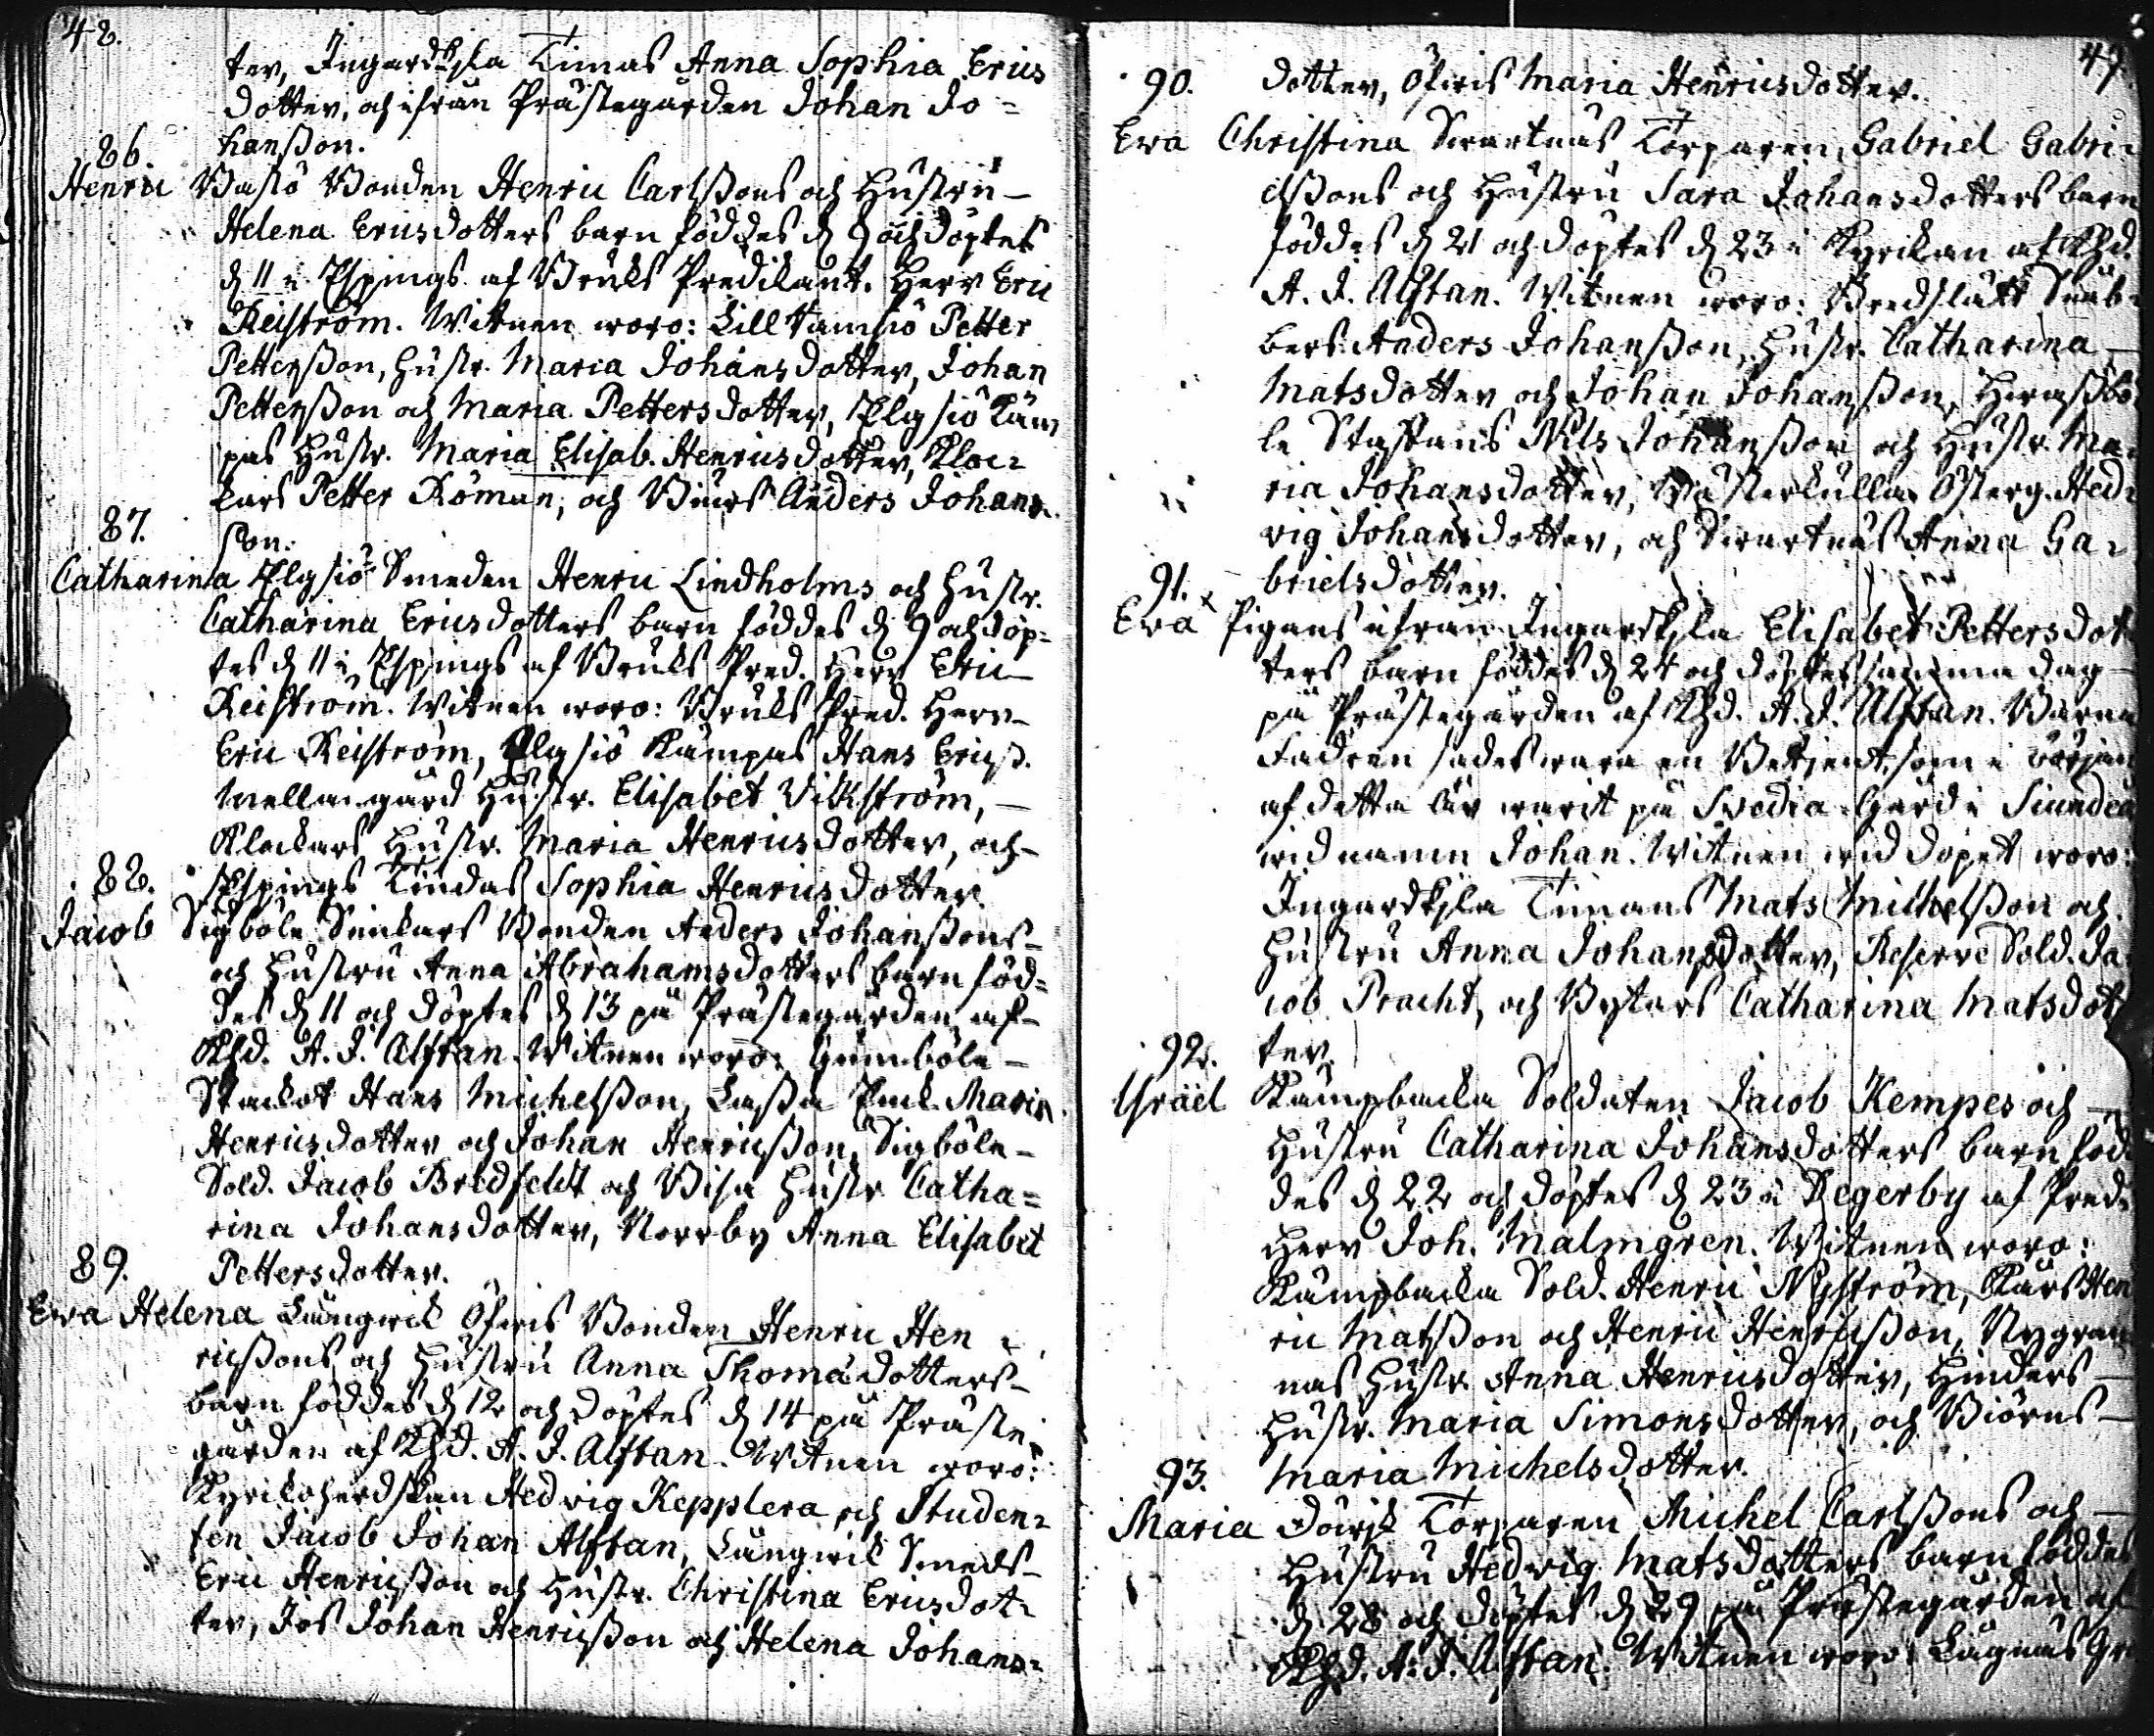 48.
ter, Ingardskyla Timas Anna Sophia Erics
dotter, och ifrån Prästegården Johan Jo=
hansson.
86.
Henric Basö Bonden Henric Carlssons och Hustru
Helena Ericsdotters barn föddes d 9 och döptes
d 11 i Espings af Bruks Predikant. Herr Eric
Reiström. Witnen woro: Lill Kamsiö Petter
Pettersson, Hustr. Maria Johansdotter, Johan
Pettersson och Maria Pettersdotter, Elgsiö Käm
pas Hustr. Maria Elisab. Henricsdotter, Kloc=
kars Petter Röman, och Anders Johans=
son.
87.
Catharina Elgsiö Smeden Henric Lindholms och Hustr.
Catharina Ericsdotters barn föddes d 9 och döp=
tes d 11 i Espings af Bruks Pred. Herr Eric
Reiström. Witnen woro: Bruks Pred. Herr
Eric Reiström, Elgsiö Kämpas Hans Ericss.
Mellangård Hustr. Elisabet Vikström,
Klockars Hustr. Maria Henricsdotter, och
Espings Lindas Sophia Henricsdotter.
88.
Jacob Sigböle Simkars Bonden Anders Johanssons
och Hustru Anna Abrahamsdotters barn föd=
des d 11 och döptes d 13 på Prästegården af
Khd. A. J. Alftan. Witnen woro: Gumböle
Stackot Hans Michelsson, Lassa Maria
Henricsdotter och Johan Henricsson, Sigböle
Sold. Jacob Bredfeldt och Bisa Hustr. Catha=
rina Johansdotter, Norrby Anna Elisabet
Pettersdotter.
89.
Ewa Helena Långwik Öfwis Bonden Henric Hen
ricssons och Hustru Anna Thomædotters
barn föddes d 12 och döptes d 14 på Präste
gården af Khd. A. J. Alftan. Witnen woro:
Kyrkoherdskan Hedvig Kepplera och Studen=
ten Jacob Johan Alftan, Långwik Smeds
Eric Henricsson och Hustr. Christina Ericsdot=
ter, Jos Johan Henricsson och Helena Johans=
47.
dotter, Öfwis Maria Henricsdotter.
90.
Ewa Christina Swartnäs Torparen, Gabriel Gabri=
elssons och Hustru Sara Johansdotters barn
föddes d 21 och döptes d 23 i Kyrckan af Khd.
A. J. Alftan. Witnen woro: Bredslätt Snåb=
bers Anders Johansson, Hustr. Catharina
Matsdotter och Johan Johansson, Heras
le Staffans Nils Johansson och Hustr. Ma=
ria Johansdotter, Wästerkulla Österg. Hed=
vig Johansdotter, och Swartnäs Anna Ga=
brielsdotter.
91.
Ewa Pigans ifrån Ingardskyla Elisabet Pettersdot
ters barn föddes d 24 och döptes samma dag
på Prästegården af Khd. A. J. Alftan. Barna
Fadren sades vara en Betjent, som i början
af detta år warit på Svedia Gård i Siundeå
wid namn Johan. Witnen wid dopet woro:
Ingardskyla Timans Mats Michelsson och
Hustru Anna Johansdotter, Reserve Sold. Ja
cob Pracht, och Byters Catharina Matsdot
ter.
92.
Israël Kämpbacka Soldaten Jacob Kempes och
Hustru Catharina Johansdotters barn föd
des d 22 och döptes d 23 i Degerby af Pred.
Herr Joh. Malmgren. Witnen woro:
Kämpbacka Sold. Henric Nyström, Kårs Hen
ric Matsson och Henric Henricsson, Nygran
nas Hustr. Anna Henricsdotter, Hinders
Hustr. Maria Simonsdotter, och Biörns
Maria Michelsdotter.
93.
Maria Torparen Michel Carlssons och
Hustru Hedvig Matsdotters barn föddes
d 28 och döptes d 29 på Prästegården af
Khd. A. J. Alftan. Witnen woro: Lågnäs